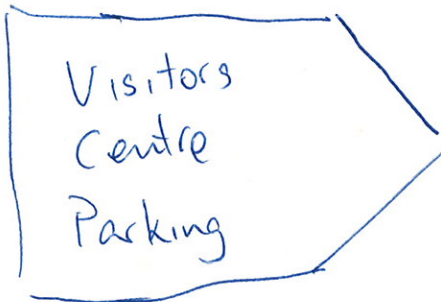 Visitors
Centre
Parking